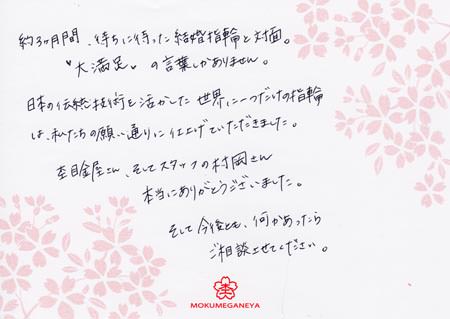 約3ヶ月間、待ちに待った結婚指輪と対面。
"大満足"の言葉しかありません。
日本の伝統技術を活かした世界に一つだけの指輪
は、私たちの願い通りに仕上げていただきました。
杢目金屋さん、そしてスタッフの村岡さん
本当にありがとうございました。
そして今後とも、何かあったら
ご相談させてください。
杢
MOKUMEGANEYA